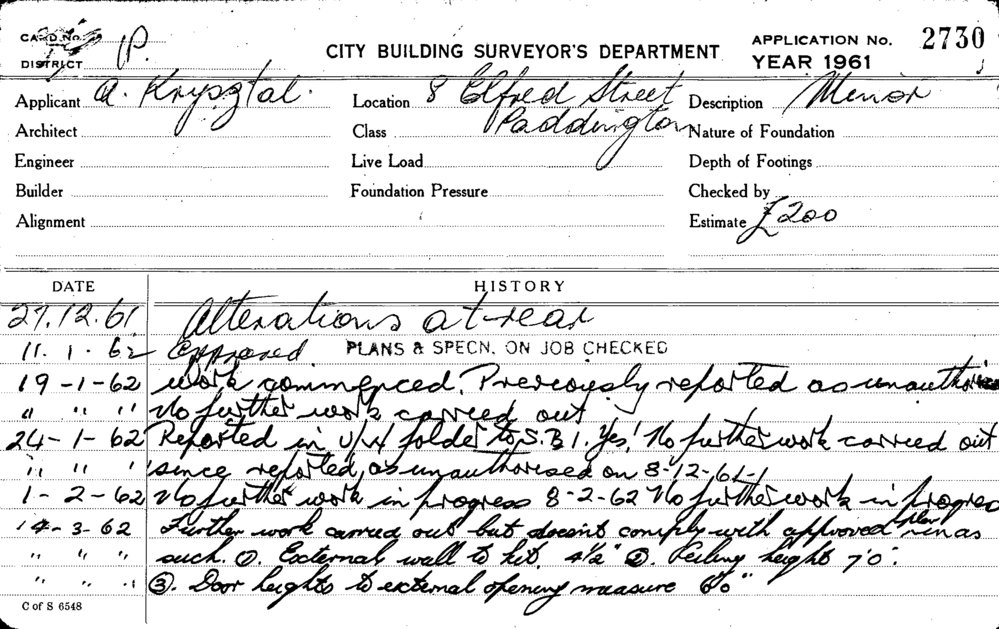 CARD No.
DISTRICT P.
CITY BUILDING SURVEYOR'S DEPARTMENT
APPLICATION No. 2730
YEAR 1961
Applicant A. Krysztal. Location 8 Elfred Street Description Minor
Architect Class Paddington Nature of Foundation
Engineer Live Load Depth of Footings
Builder Foundation Pressure Checked by
Alignment Estimate £200
DATE HISTORY
27.12.61 Alterations at rear
11.1.62 Approved. PLANS & SPECN. ON JOB CHECKED
19-1-62 work commenced. Previously reported as unauthorised
" " " No further work carried out
24-1-62 Reported in U/A folder to S.B.I. Yes! No further work carried out
" " " since reported as unauthorised on 8-12-61
1-2-62 No further work in progress 8-2-62 No further work in progress
14-3-62 Further work carried out but doesn't comply with approved plan in as
" " " such. ①. External wall to kit. 4½" ②. Ceiling height 7'0"
" " " ③. Door heights to external opening measure 6'0"
C of S 6548